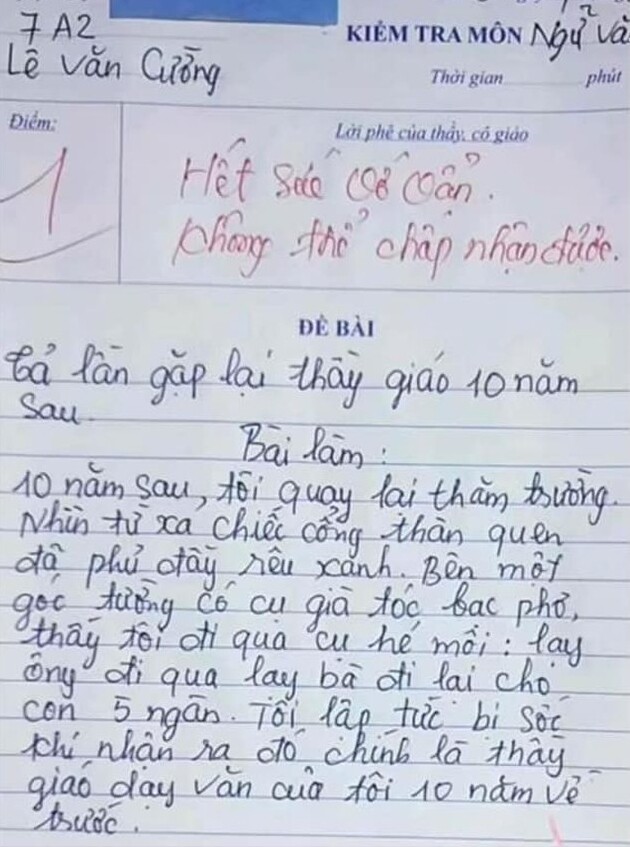 7A2
KIỂM TRA MÔN Ngữ Vă
Lê Văn Cường
Thời gian phút
Điểm:
Lời phê của thầy, cô giáo
1
Hết sức vớ vẩn.
Không thể chấp nhận được.
ĐỀ BÀI
tả lần gặp lại thầy giáo 10 năm
sau
Bài làm:
10 năm sau, tôi quay lại thăm trường.
Nhìn từ xa chiếc cổng thân quen
đã phủ đầy rêu xanh. Bên một
góc tường có cụ già tóc bạc phơ,
thấy tôi đi qua cụ hé môi: lạy
ông đi qua lạy bà đi lại cho
con 5 ngàn. Tôi lập tức bị sốc
khi nhận ra đó chính là thầy
giáo dạy văn của tôi 10 năm về
trước.